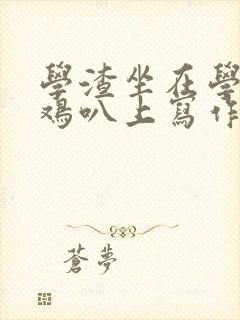 學渣坐在學
鴆叭上寫作
蒼夢